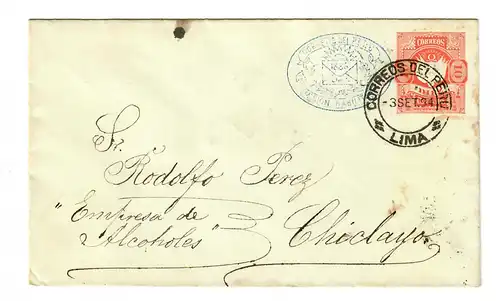 CORREOS
10
CORREOS DEL PERU
-3SET.94
LIMA
Sr.
Rodolfo Perez
"Empresa de
Alcoholes"
Chiclayo.